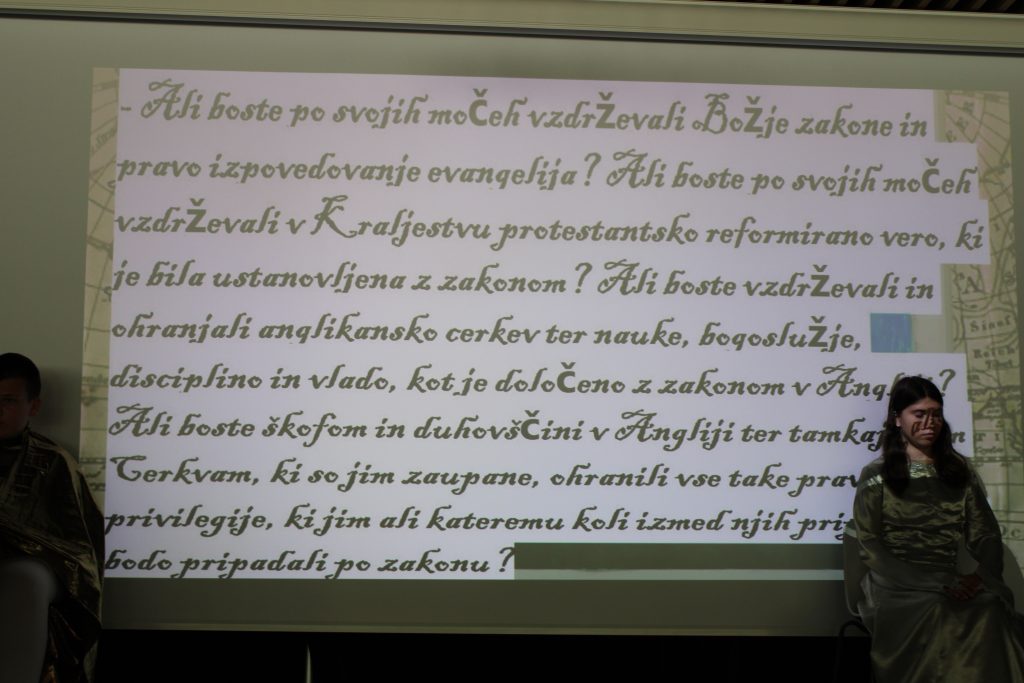 - Ali boste po svojih močeh vzdrževali Božje zakone in
pravo izpovedovanje evangelija? Ali boste po svojih močeh
vzdrževali v Kraljestvu protestantsko reformirano vero, ki
je bila ustanovljena z zakonom? Ali boste vzdrževali in
ohranjali anglikansko cerkev ter nauke, bogoslužje,
disciplino in vlado, kot je določeno z zakonom v
Ali boste škofom in duhovščini v Angliji ter
Cerkvam, ki so jim zaupane, ohranili vse take
privilegije, ki jim ali kateremu koli izmed njih
bodo pripadali po zakonu?